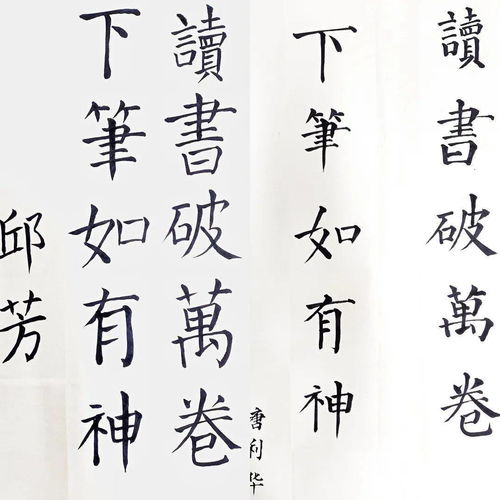 讀書破萬卷
下筆如有神
唐利华
讀書破萬卷
下筆如有神
邱芳